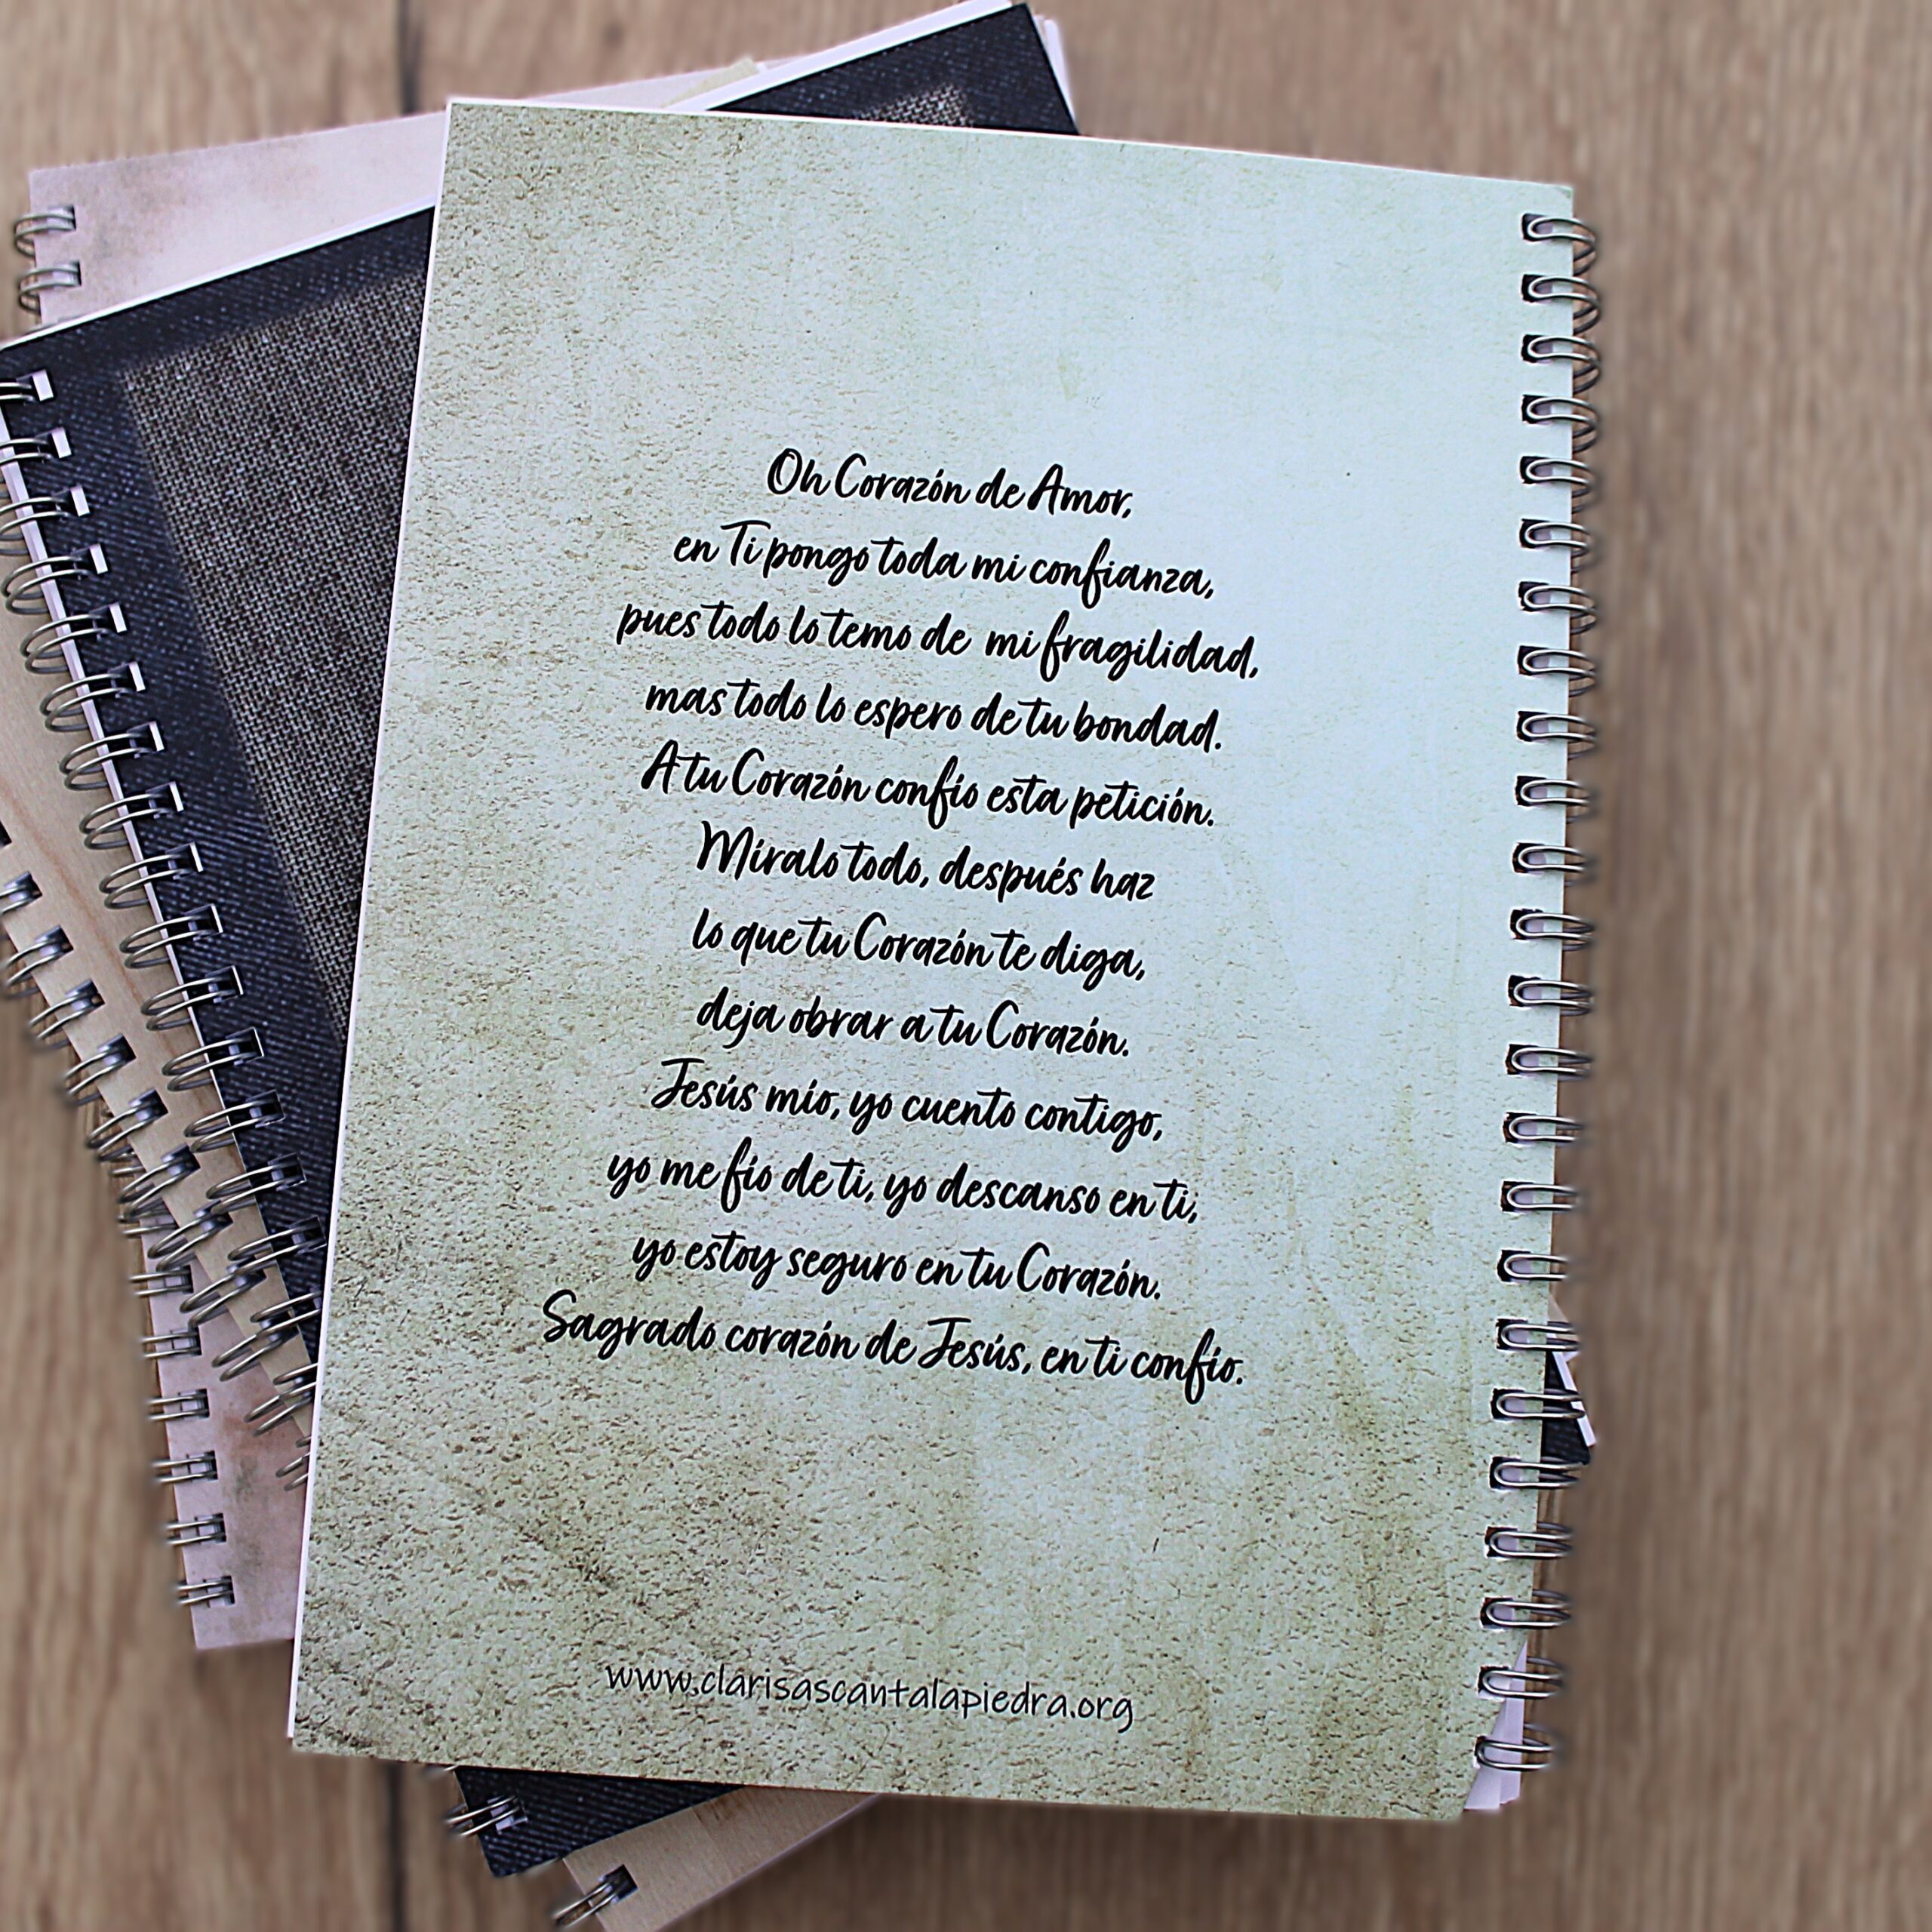 Oh Corazón de Amor,
en Ti pongo toda mi confianza,
pues todo lo temo de mi fragilidad,
mas todo lo espero de tu bondad.
A tu Corazón confío esta petición.
Míralo todo, después haz
lo que tu Corazón te diga,
deja obrar a tu Corazón.
Jesús mío, yo cuento contigo,
yo me fío de ti, yo descanso en ti,
yo estoy seguro en tu Corazón.
Sagrado corazón de Jesús, en ti confío.
www.clarisascantalapiedra.org